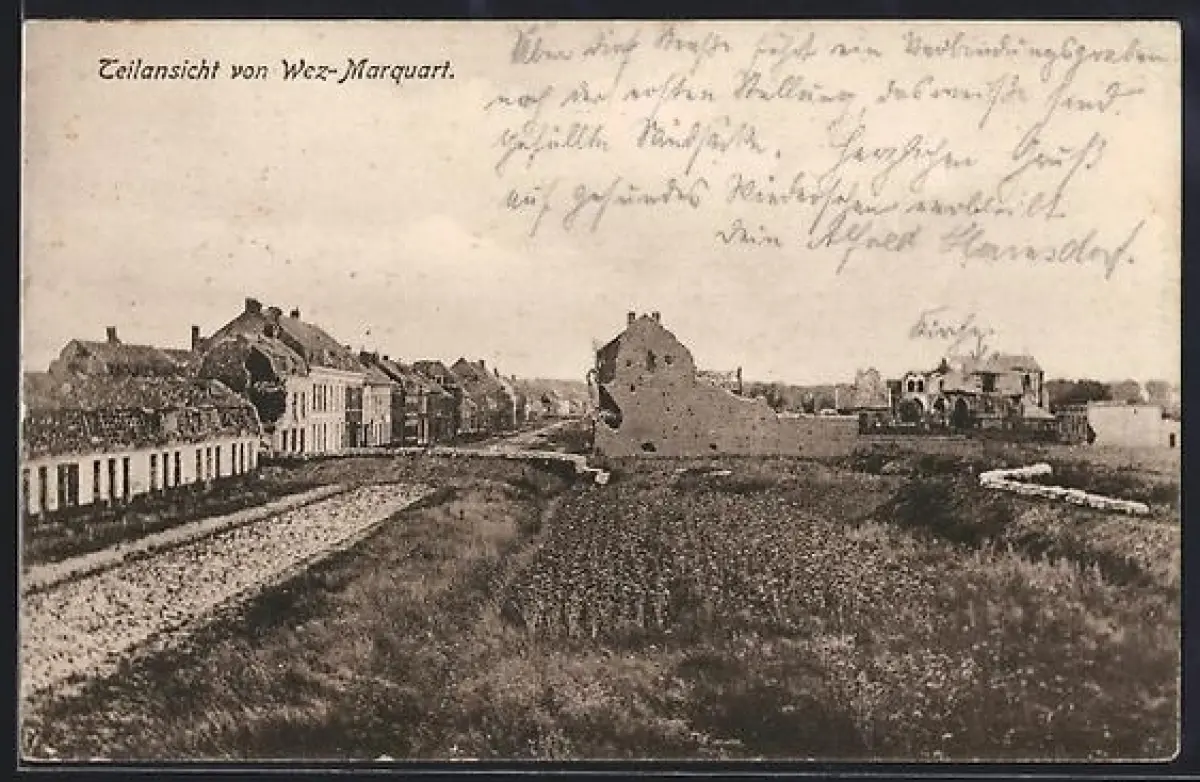 Teilansicht von Wez-Marquart.
Über diese Straße führt ein Verbindungsgraben
nach der ersten Stellung, das weiße sind
gefüllte Sandsäcke. Herzlichen Gruß
auf gesundes Wiedersehen verbleibt
Dein Alfred
Kirche